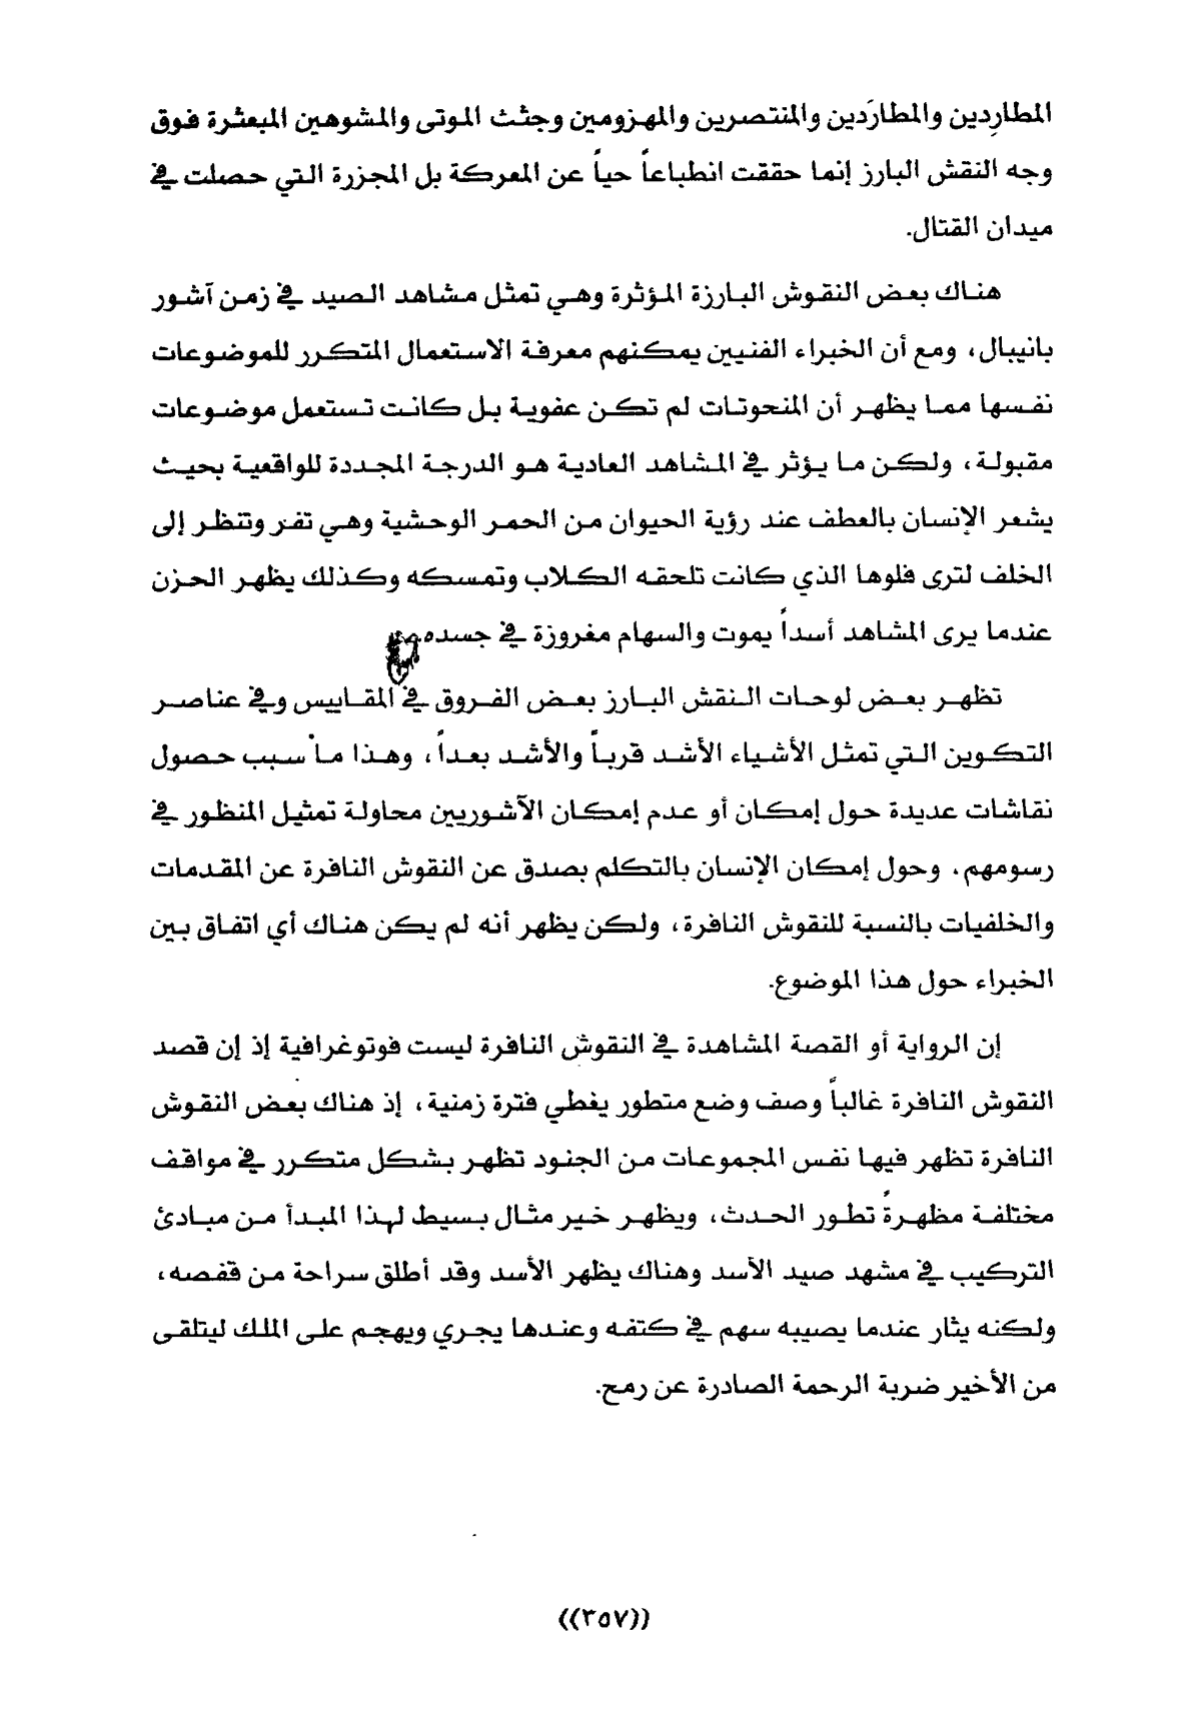 المطارِدين والمطارَدين والمنتصرين والمهزومين وجثث الموتى والمشوهين المبعثرة فوق
وجه النقش البارز إنما حققت انطباعاً حياً عن المعركة بل المجزرة التي حصلت في
ميدان القتال.
هناك بعض النقوش البارزة المؤثرة وهي تمثل مشاهد الصيد في زمن آشور
بانيبال، ومع أن الخبراء الفنيين يمكنهم معرفة الاستعمال المتكرر للموضوعات
نفسها مما يظهر أن المنحوتات لم تكن عفوية بل كانت تستعمل موضوعات
مقبولة، ولكن ما يؤثر في المشاهد العادية هو الدرجة المجددة للواقعية بحيث
يشعر الإنسان بالعطف عند رؤية الحيوان من الحمر الوحشية وهي تفر وتنظر إلى
الخلف لترى فلوها الذي كانت تلحقه الكلاب وتمسكه وكذلك يظهر الحزن
عندما يرى المشاهد أسداً يموت والسهام مغروزة في جسده
تظهر بعض لوحات النقش البارز بعض الفروق في المقاييس وفي عناصر
التكوين التي تمثل الأشياء الأشد قرباً والأشد بعداً، وهذا ما سبب حصول
نقاشات عديدة حول إمكان أو عدم إمكان الآشوريين محاولة تمثيل المنظور في
رسومهم. وحول إمكان الإنسان بالتكلم بصدق عن النقوش النافرة عن المقدمات
والخلفيات بالنسبة للنقوش النافرة، ولكن يظهر أنه لم يكن هناك أي اتفاق بين
الخبراء حول هذا الموضوع.
إن الرواية أو القصة المشاهدة في النقوش النافرة ليست فوتوغرافية إذ إن قصد
النقوش النافرة غالباً وصف وضع متطور يغطي فترة زمنية، إذ هناك بعض النقوش
النافرة تظهر فيها نفس المجموعات من الجنود تظهر بشكل متكرر في مواقف
مختلفة مظهرةً تطور الحدث، ويظهر خير مثال بسيط لهذا المبدأ من مبادئ
التركيب في مشهد صيد الأسد وهناك يظهر الأسد وقد أطلق سراحة من قفصه،
ولكنه يثار عندما يصيبه سهم في كتفه وعندها يجري ويهجم على الملك ليتلقى
من الأخير ضربة الرحمة الصادرة عن رمح.
((٣٥٧))